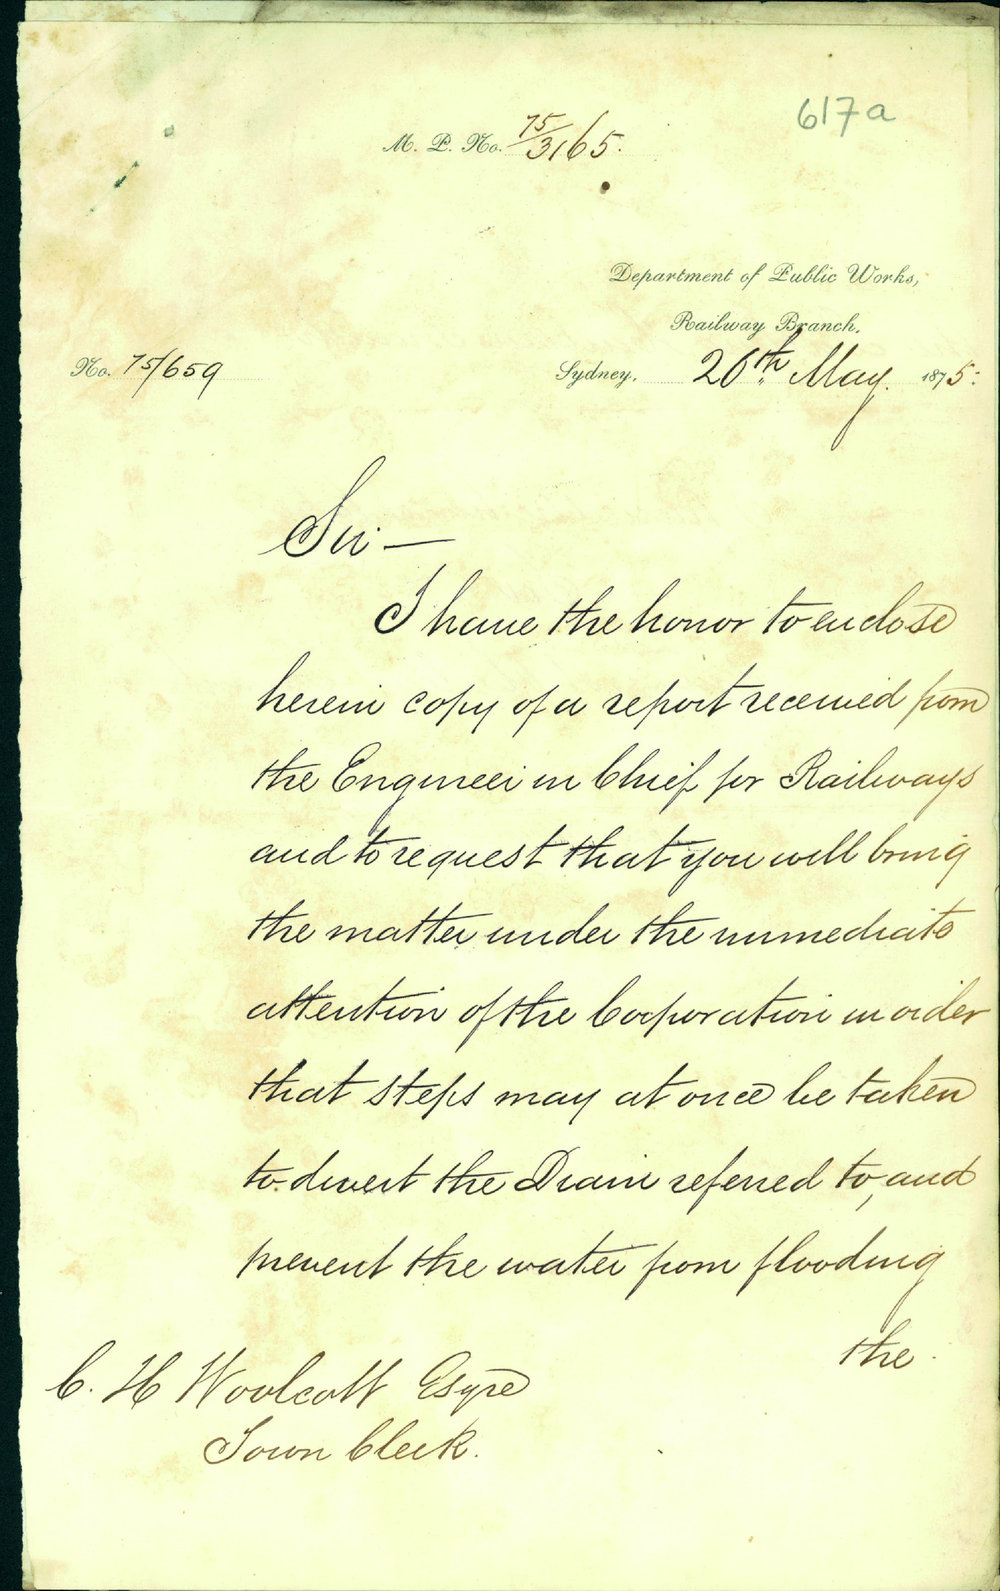 617a
M. P. No. 75/3165.
Department of Public Works,
Railway Branch,
No. 75/659
Sydney, 26th May 1875.
Sir —
I have the honor to enclose
herein copy of a report received from
the Engineer in Chief for Railways
and to request that you will bring
the matter under the immediate
attention of the Corporation in order
that steps may at once be taken
to divert the Drain referred to, and
prevent the water from flooding
the
C. H Woolcott Esqre
Town Clerk.